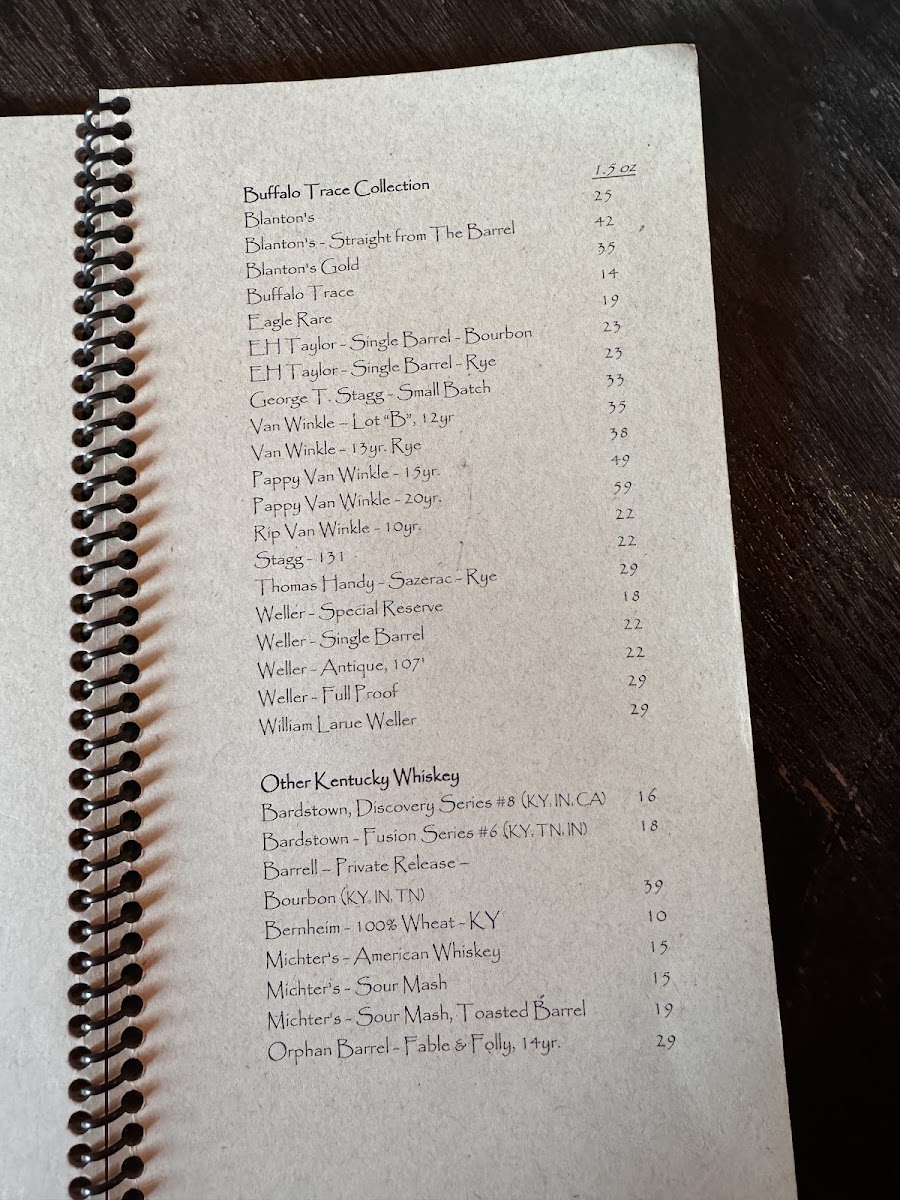 Buffalo Trace Collection 1.5 oz
Blanton's 25
Blanton's - Straight from The Barrel 42
Blanton's Gold 35
Buffalo Trace 14
Eagle Rare 19
EH Taylor - Single Barrel - Bourbon 23
EH Taylor - Single Barrel - Rye 23
George T. Stagg - Small Batch 33
Van Winkle – Lot “B”, 12yr 35
Van Winkle – 13yr. Rye 38
Pappy Van Winkle - 15yr. 49
Pappy Van Winkle - 20yr. 59
Rip Van Winkle - 10yr. 22
Stagg - 131 22
Thomas Handy - Sazerac - Rye 29
Weller - Special Reserve 18
Weller - Single Barrel 22
Weller - Antique, 107' 22
Weller - Full Proof 29
William Larue Weller 29
Other Kentucky Whiskey
Bardstown, Discovery Series #8 (KY, IN, CA) 16
Bardstown - Fusion Series #6 (KY, TN, IN) 18
Barrell – Private Release –
Bourbon (KY, IN, TN) 39
Bernheim - 100% Wheat - KY 10
Michter's - American Whiskey 15
Michter's - Sour Mash 15
Michter's - Sour Mash, Toasted Barrel 19
Orphan Barrel - Fable & Folly, 14yr. 29